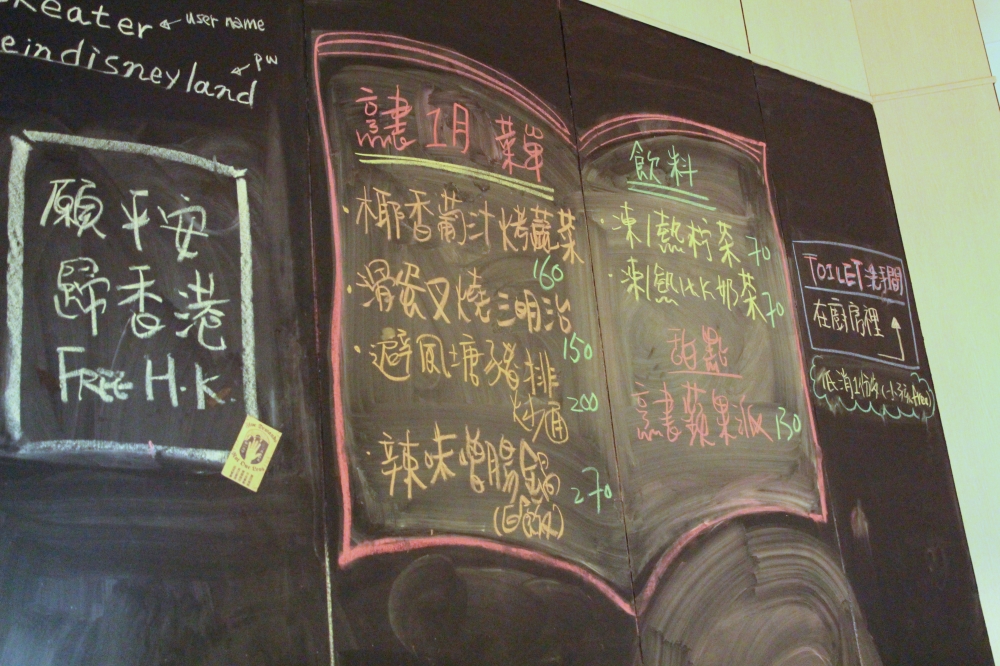 keater ← user name
eindisneyland ← pw
願平安
歸香港
FREE H.K.
1月 菜單
·椰香葡汁烤蔬菜
160
·滑蛋叉燒三明治
150
·避風塘豬排
200
·辣味噌腸鍋
270
(白飯)
飲料
·凍/熱柠茶 70
·凍/熱H.K奶茶 70
甜點
蘋果派 130
TOILET 洗手間
在廚房裡